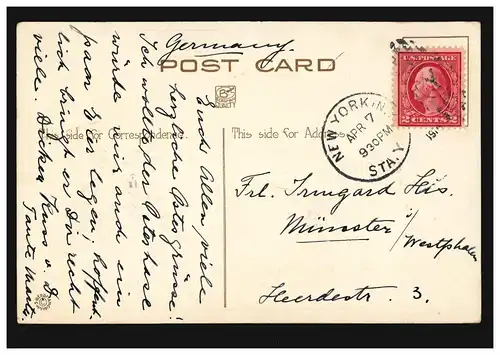 Germany.
POST CARD
This side for Correspondence.
This side for Address
U.S. POSTAGE
2 CENTS 2
NEW YORK, N.Y.
APR 7
930PM
STA. Y
Euch Allen viele
herzliche Ostergrüsse!
Ich wollte der Osterhase
würde mir auch ein
paar Eier legen; hoffent-
lich bringt er Dir recht
viele. Dicken Kuss v. D.
Tante Marta.
Frl. Irmgard His.
Münster i/
Westphalen
Heerdestr. 3.